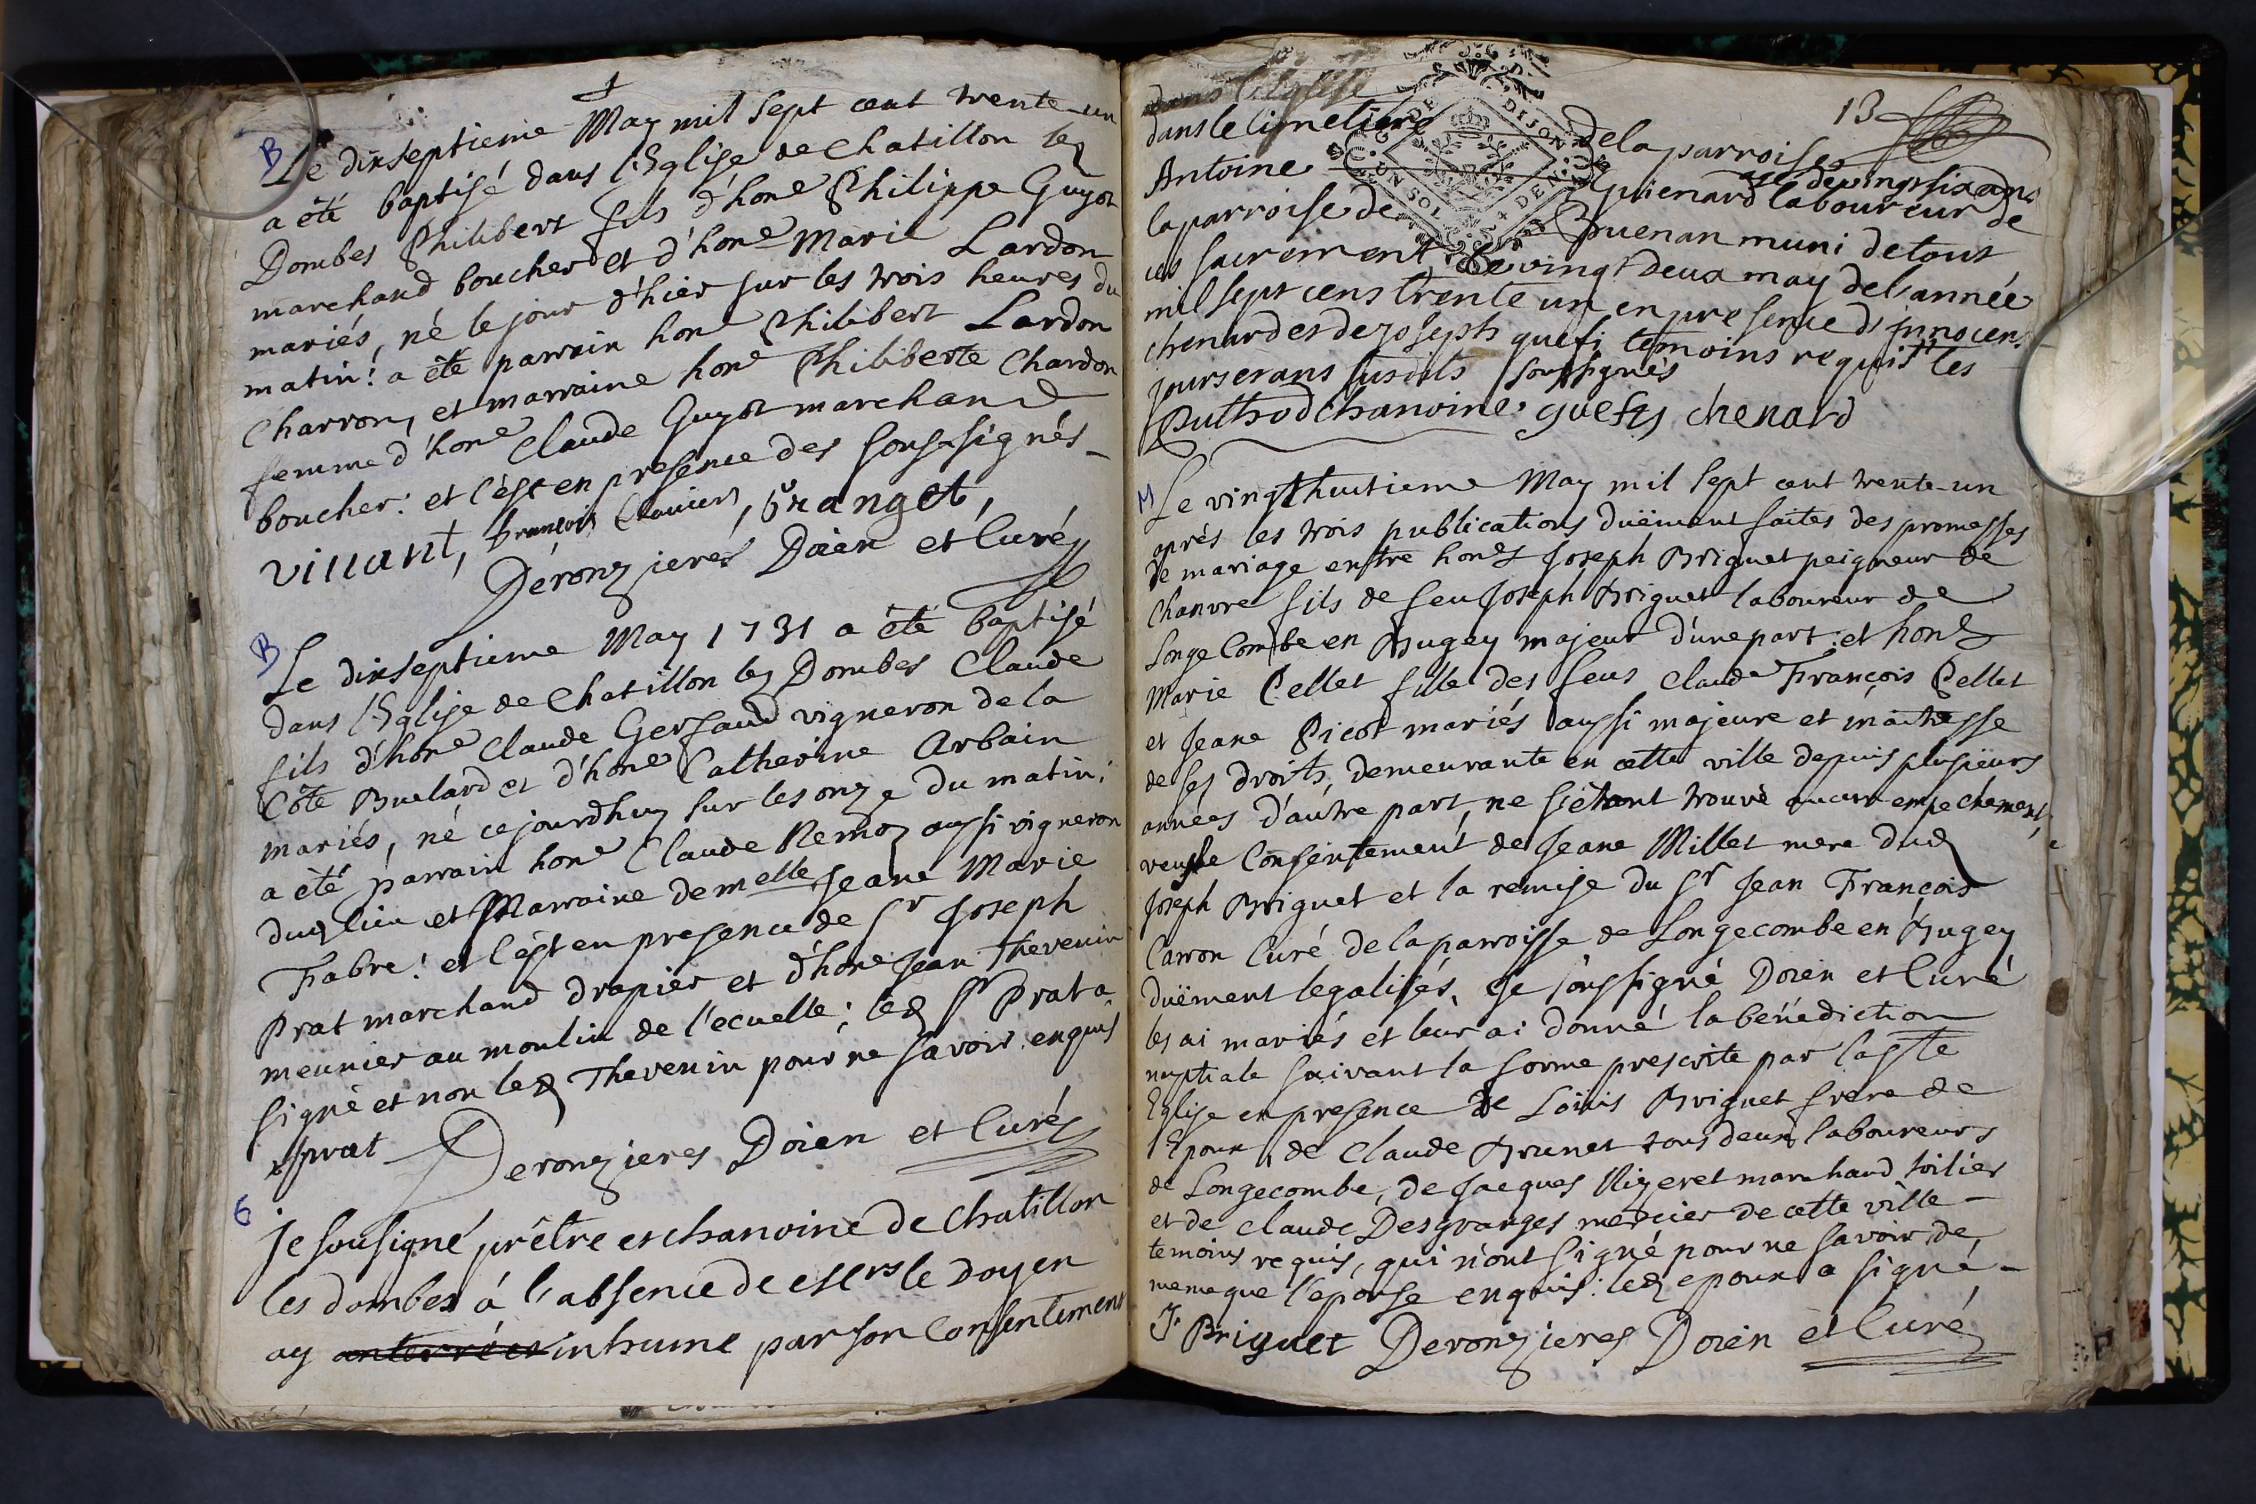 B
Le dixseptieme May mil sept cent trente-un
a été baptisé dans l'Eglise de Chatillon les
Dombes Philibert fils d'hone Philippe Guyot
marchand boucher et d'hone Marie Lardon
mariés, né le jour d'hier sur les trois heures du
matin: a été parrain hone Philibert Lardon
Charron, et marraine hone Philiberte Chardon
femme d'hone Claude Guyot marchand
boucher: et c'est en presence des soussignés-
villant, françois, Granget,
Deronzieres Doien et Curé
B
Le dixseptieme May 1731 a été baptisé
dans l'Eglise de Chatillon les Dombes Claude
fils d'hone Claude Gersaud vigneron de la
Côte Buelard et d'hone Catherine Arbain
mariés, né cejourdhuy sur les onze du matin:
a été parrain hone Claude Remoz aussi vigneron
dud lieu et Marraine demelle Jeane Marie
Fabre: et c'est en presence de Sr Joseph
Prat marchand drapier et d'hone Jean Thevenin
meunier au moulin de l'ecuelle; led Sr Prat a
signé et non led Thevenin pour ne savoir enquis
prat Deronzieres Doien et Curé
6
je sousigné prêtre et chanoine de chatillon
les dombes á l'absence de le Doyen
ay anterré et inhumé par son Consentement
13
dans l'Eglise
dans le cimetiere de la parroise
Antoine Guienard laboureur de
agé de vingt six ans
la parroise de Buenan muni de tous
ces sacrement le vingt deux may de l'année
mil sept cens trente un en presence d innocent
chenard et de joseph guefi temoins requis les
jours et ans susdits soussignés
Puthod chanoine guefis chenard
G. DE DIJON
UN SOL 4 DEN.
M
Le vingthuitieme May mil sept cent trente-un
aprés les trois publications duëment faites des promesses
de mariage entre hone Joseph Briguet peigneur de
Chanvre fils de feu Joseph Briguet laboureur de
Longe Combe en Bugey majeur d'une part: et hone
Marie Cellet fille des feus Claude François Cellet
et Jeane Picot mariés aussi majeure et maitresse
de ses droits, demeurante en cette ville depuis plusieurs
années d'autre part, ne s'étant trouvé aucun empechement,
veu le Consentement de Jeane Millet mere dud
Joseph Briguet et la remise du Sr Jean François
Carron Curé de la parroisse de Longecombe en Bugey
duëment legalisés, Je soussigné Doien et Curé
les ai mariés et leur ai donné la bénediction
nuptiale suivant la forme prescrite par la Ste
Eglise en presence de Loüis Briguet frere de
l'Epoux, de Claude Brunet tous deux laboureurs
de Longecombe, de Jacques Rigeret marchand toilier
et de Claude Desgranges mercier de cette ville-
temoins requis, qui n'ont signé pour ne savoir de
meme que l'epouse enquis: led epoux a signé-
J. Briguet Deronzieres Doien et Curé